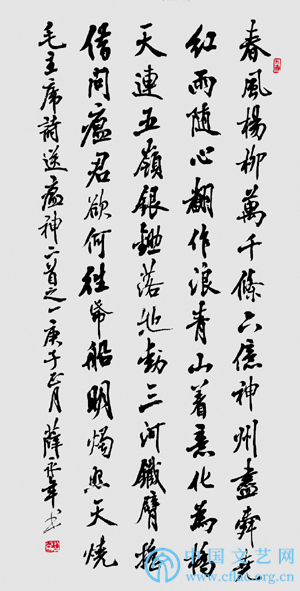 春風楊柳萬千條六億神州盡舜堯
紅雨隨心翻作浪青山着意化為橋
天連五嶺銀鋤落地動三河鐵臂搖
借問瘟君欲何往帋船明燭照天燒
毛主席詩送瘟神二首之一庚子正月 薛永年书
中国文艺网
www.cflac.org.cn